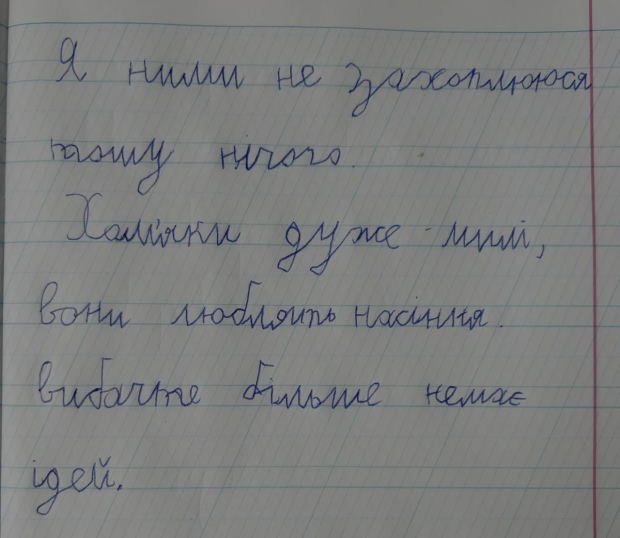 Я ними не захоплююся
тому нічого.
Хом'яки дуже милі,
вони люблять насіння.
вибачте більше немає
ідей.